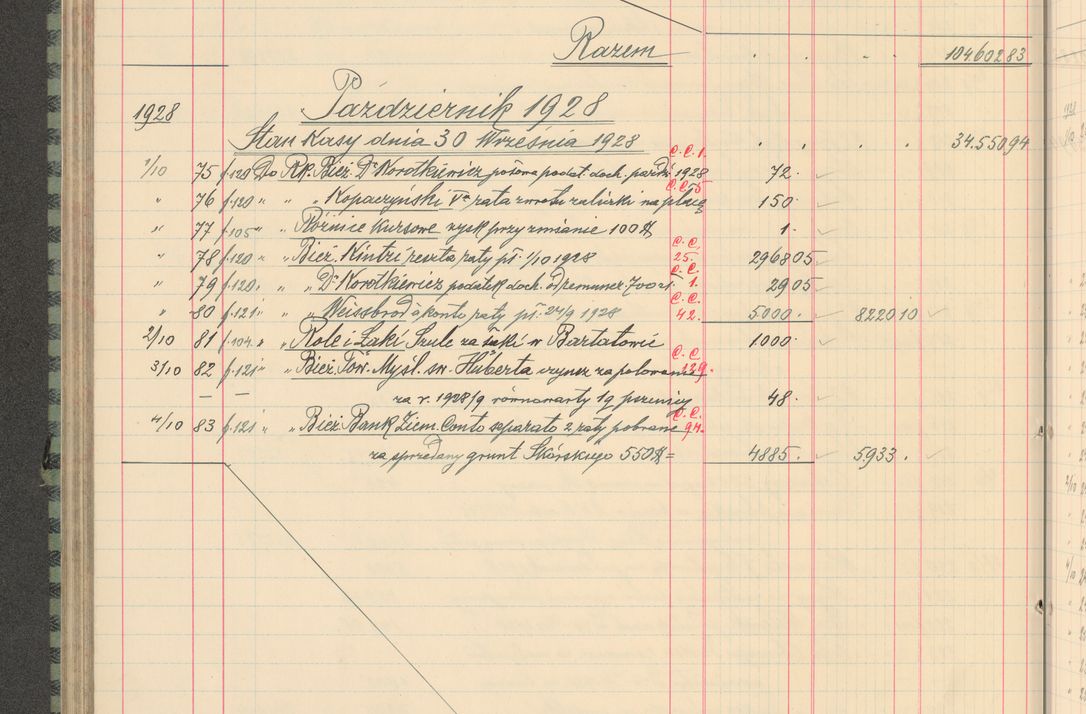 Razem . . . . 10460283
Październik 1928
1928
Stan Kasy dnia 30 Września 1928 . . . . 34.55094
C.C.1.
1/10 75 f.120 Do Rk. Bież. Dr Korotkiewicz podat. doch. paźdź. 1928 72.
C.C.55
" 76 f.120 " " " Kopaczyński Va rata zwrotu zaliczki na płacę 150.
" 77 f.105 " " Różnice Kursowe zysk przy zmianie 100 $ 1.
C.C.
" 78 f.120 " " Bież. Kintzi reszta raty pł. 1/10 1928 25. 296805
C.C.
" 79 f.120 " " " Dr Korotkiewicz podatek doch. od remuner. 700 zł 1. 2905
C.C.
" 80 f.121 " " " Weissbrod à konto raty pł. 24/9 1928 42. 5000. 822010
2/10 81 f.104 " " Role i Łąki Szulc za łąki w Bartatowie 1000.
C.C.
3/10 82 f.121 " " Bież. Tow. Myśl. św. Huberta czynsz za polowanie 129.
— — za r. 1928/9 równowarty 1q pszenicy 48.
C.C.
4/10 83 f.121 " " Bież. Bank Ziem. Conto separato 2 raty pobrane 94.
za sprzedany grunt Skórskiego 550 $ = 4885. 5.933.